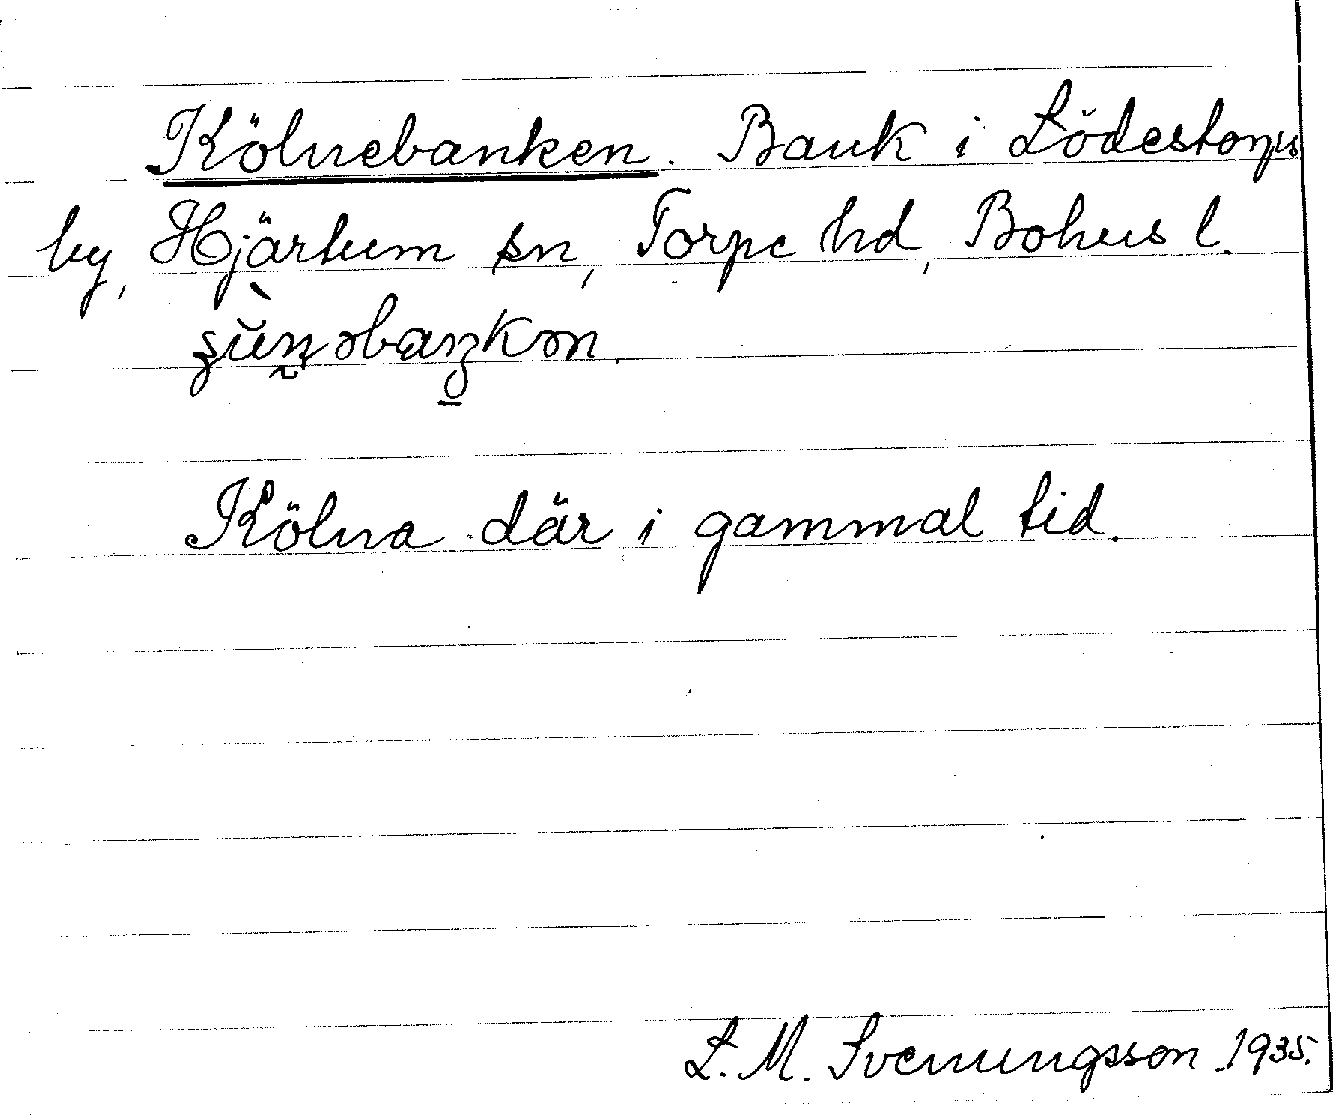 Kölnebanken. Bank i Lödestorps
by, Hjärtum sn, Torpe hd, Bohus l.
Kölna där i gammal tid.
L. M. Svenungsson 1935.